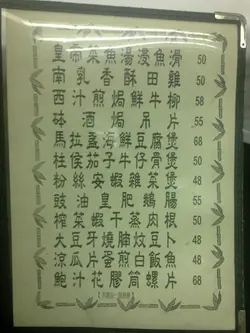 皇帝菜魚湯浸魚滑 50
南乳香酥田雞 50
西汁煎焗鮮牛柳 58
砵酒焗吊片 55
馬拉盞海鮮豆腐煲 68
柱侯茄子牛仔腐煲 50
粉絲安蝦雜菜煲 50
豉油皇肥鵝腸 55
榨菜蝦干蒸肉根 50
大豆牙燒腩炆豆卜 48
涼瓜片蛋煎白飯魚 48
鮑汁花膠筒螺片 68